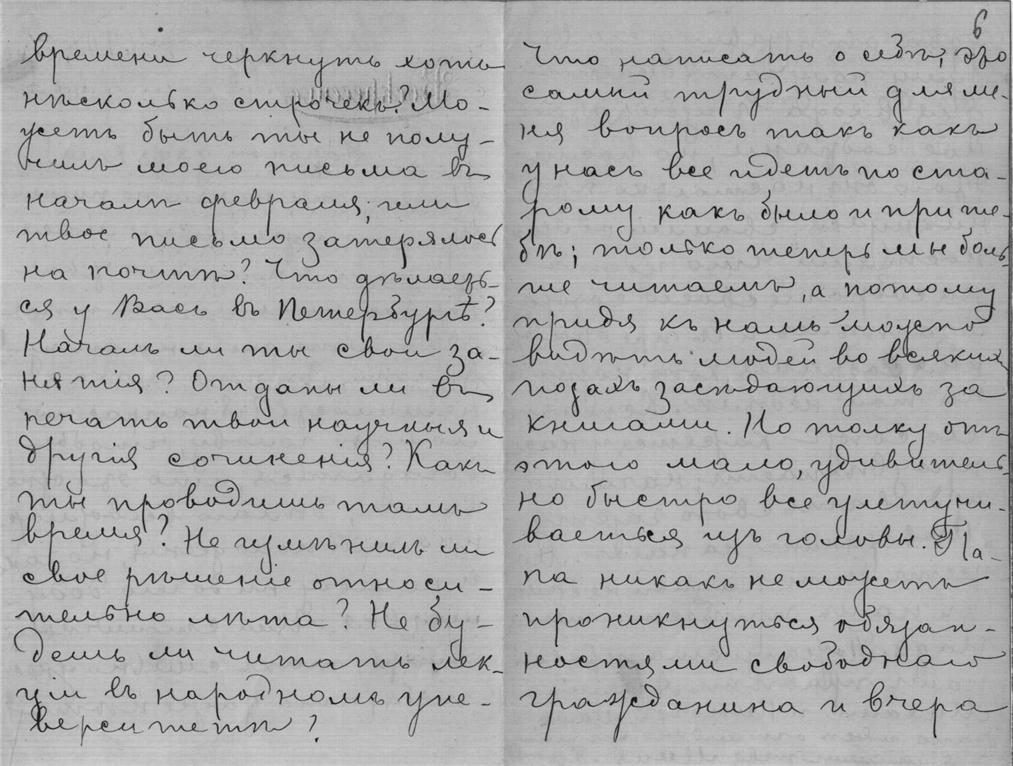 времени черкнуть хоть
нѣсколько строчекъ? Мо-
жетъ быть ты не полу-
чилъ моего письма въ
началѣ февраля, или
твое письмо затерялось
на почтѣ? Что дѣлаеть-
ся у Васъ въ Петербургѣ?
Началъ ли ты свои за-
нятія? Отданы ли въ
печать твои научныя и
другія сочиненія? Какъ
ты проводишь тамъ
время? Не измѣнилъ ли
свое рѣшеніе относи-
тельно лѣта? Не бу-
дешь ли читать лек-
ціи въ народномъ уни-
верситетѣ?
6
Что написать о себѣ, это
самый трудный для ме-
ня вопросъ такъ какъ
у насъ все идетъ по ста-
рому какъ было и при те-
бѣ; только теперь мы боль-
ше читаемъ, а потому
придя къ намъ можно
видѣть людей во всякихъ
позахъ засѣдающихъ за
книгами. Но толку отъ
этого мало, удивитель-
но быстро все улетучи-
вается изъ головы. Па-
па никакъ не можетъ
проникнуться обязан-
ностями свободнаго
гражданина и вчера